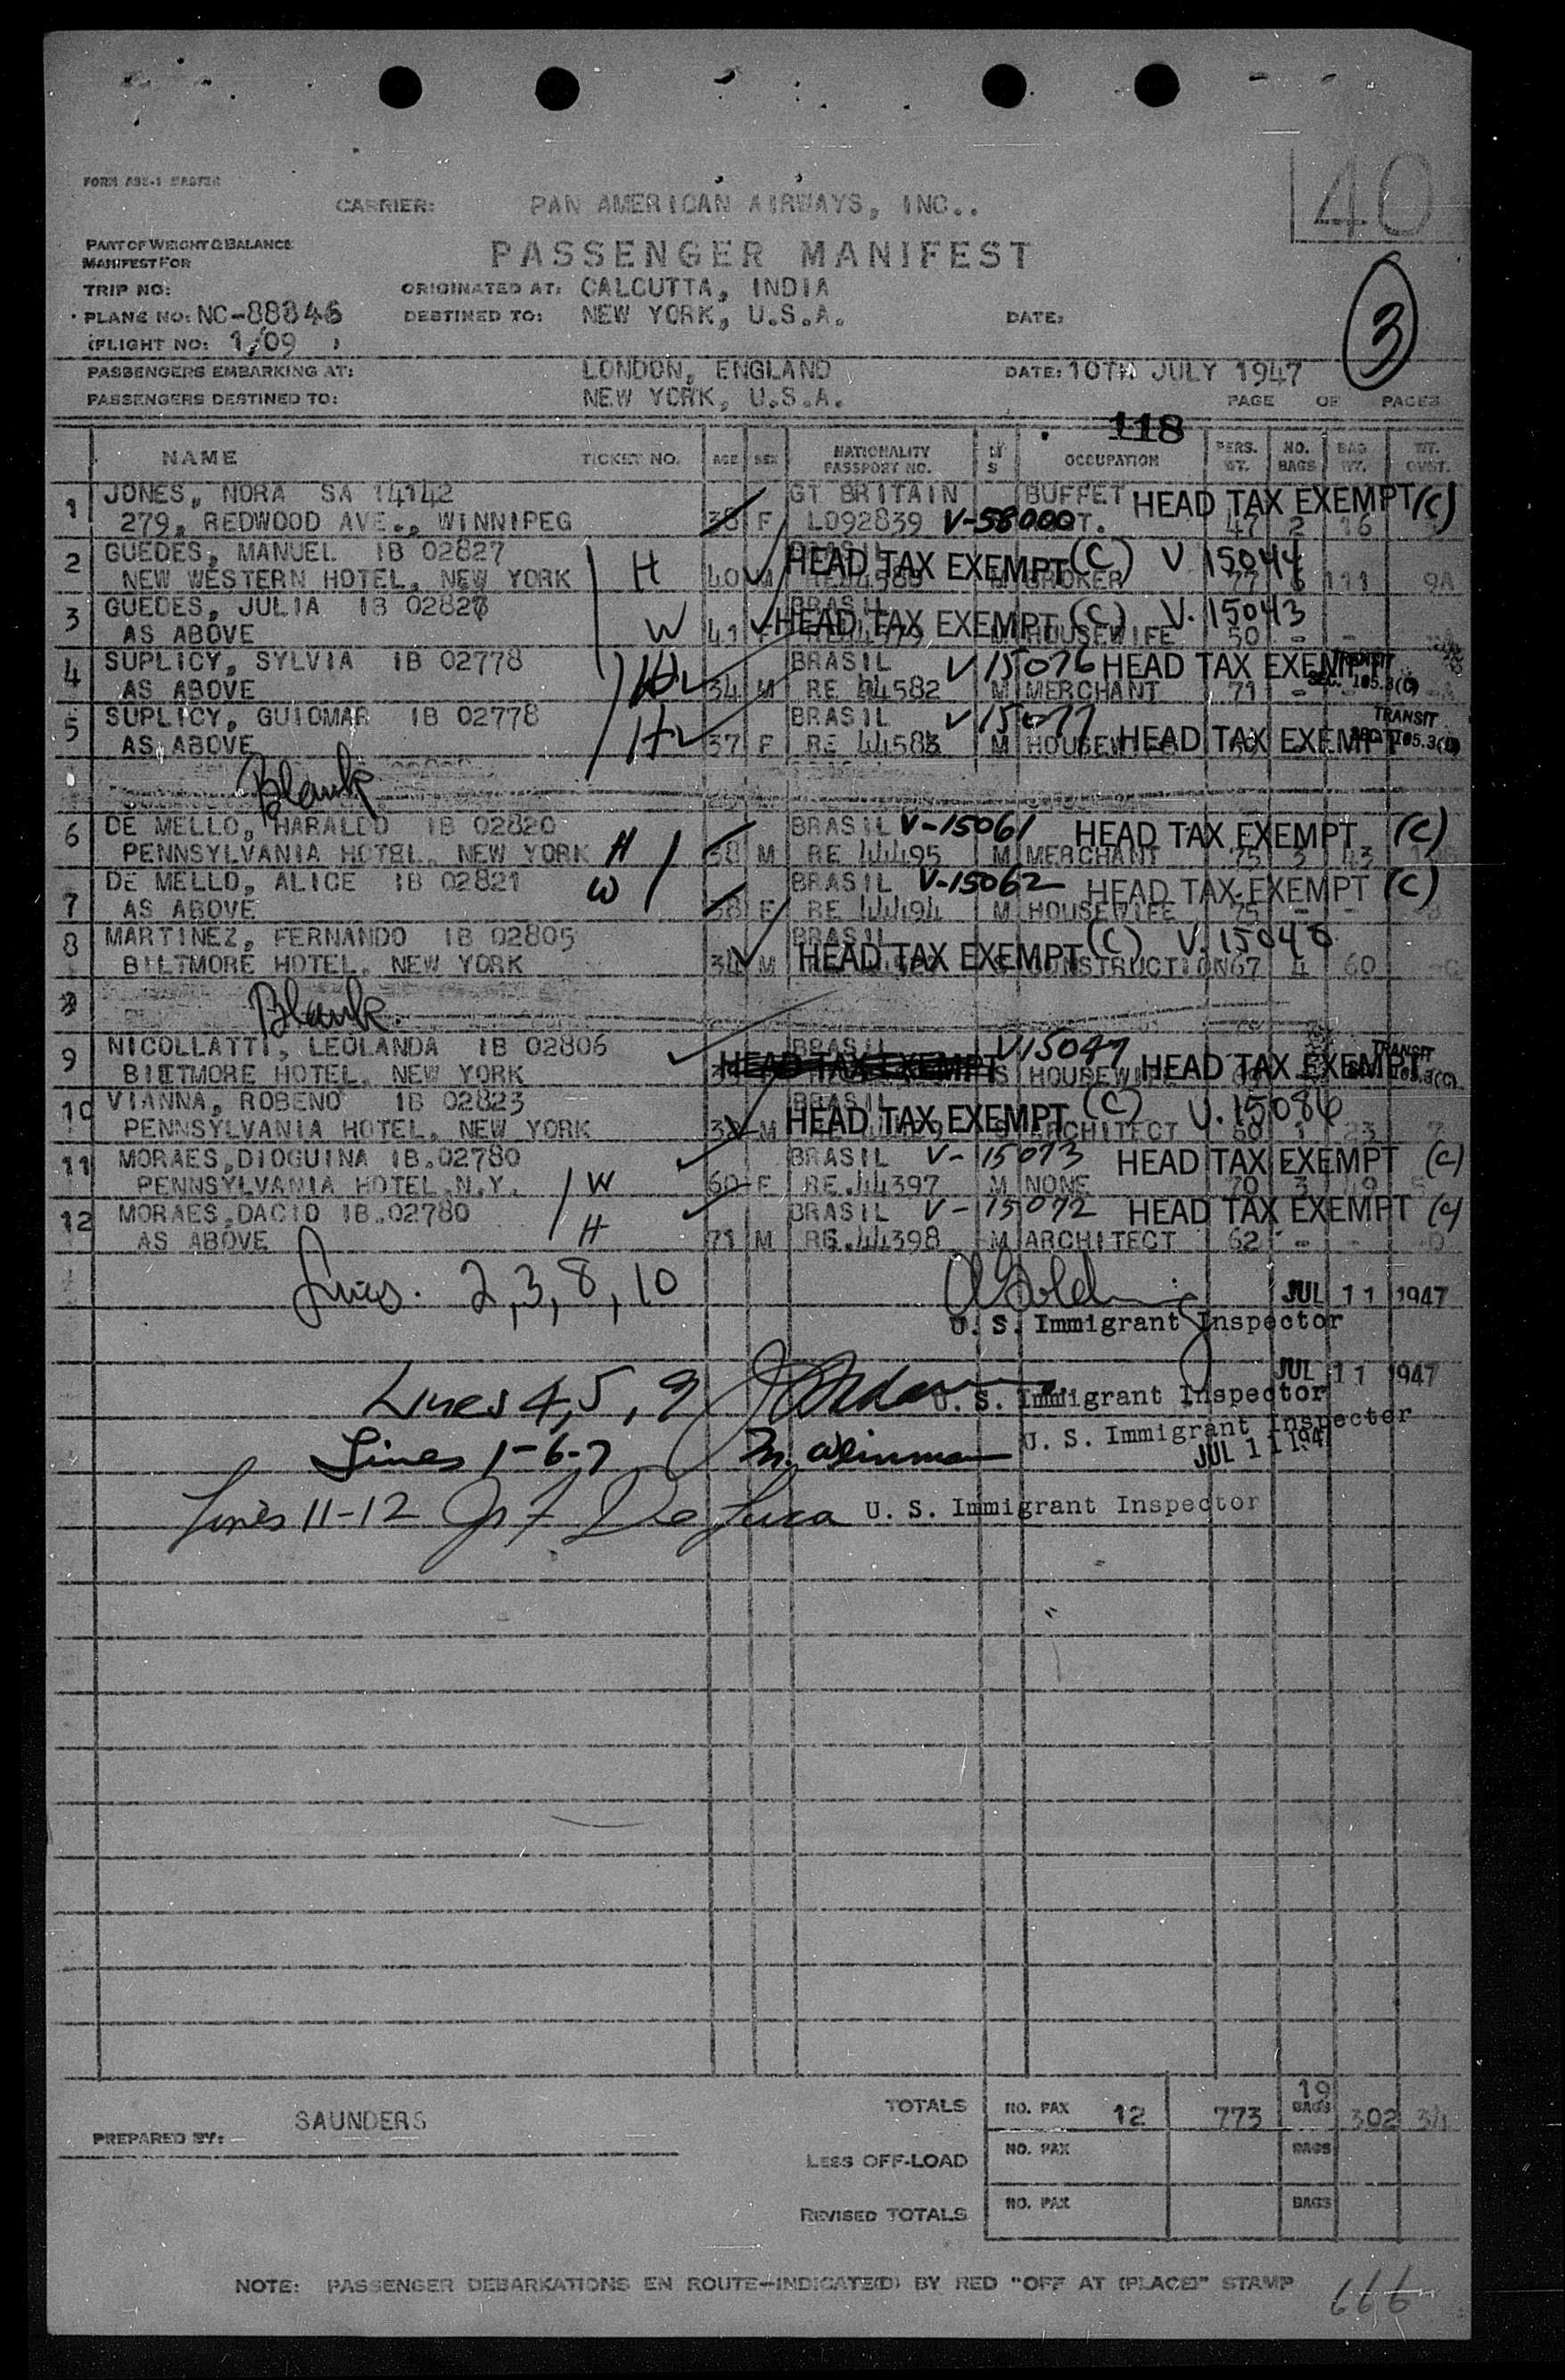 40
FORM
CARRIER: PAN AMERICAN AIRWAYS, INC..
PART OF WEIGHT & BALANCE
MANIFEST FOR
PASSENGER MANIFEST
TRIP NO:
ORIGINATED AT: CALCUTTA, INDIA
PLANE NO: NC-88846
DESTINED TO: NEW YORK, U.S.A.
DATE:
3
(FLIGHT NO: 1/09 )
PASSENGERS EMBARKING AT: LONDON, ENGLAND
DATE: 10TH JULY 1947
PASSENGERS DESTINED TO: NEW YORK, U.S.A.
PAGE OF PAGES
118
NAME TICKET NO. AGE SEX NATIONALITY PASSPORT NO. M S OCCUPATION PERS. WT. NO. BAGS BAG WT. WT. CVST.
1 JONES, NORA SA 14142 GT BRITAIN BUFFET HEAD TAX EXEMPT (C)
279, REDWOOD AVE., WINNIPEG 38 F L092839 V-58000 T. 47 2 16
2 GUEDES, MANUEL IB 02827 H HEAD TAX EXEMPT (C) V 15044
NEW WESTERN HOTEL, NEW YORK 40 M BROKER 77 6 111 9A
3 GUEDES, JULIA IB 02827 W BRASIL HEAD TAX EXEMPT (C) V. 15043
AS ABOVE 41 F HOUSEWIFE 50 - -
4 SUPLICY, SYLVIA IB 02778 BRASIL V 15076 HEAD TAX EXEMPT TRANSIT
AS ABOVE 34 M RE 44582 M MERCHANT 71 - SEC. 105.3(C)
5 SUPLICY, GUIOMAR IB 02778 BRASIL V 15077 TRANSIT
AS ABOVE 37 F RE 44583 M HOUSEW HEAD TAX EXEMPT SEC. 105.3(C)
Blank
6 DE MELLO, HARALDO IB 02820 BRASIL V-15061 HEAD TAX EXEMPT (C)
PENNSYLVANIA HOTEL, NEW YORK H 38 M RE 44495 M MERCHANT 75 3 43
7 DE MELLO, ALICE IB 02821 W BRASIL V-15062 HEAD TAX EXEMPT (C)
AS ABOVE 38 F RE 44494 M HOUSEWIFE 75 - -
8 MARTINEZ, FERNANDO IB 02805 BRASIL HEAD TAX EXEMPT (C)
BILTMORE HOTEL, NEW YORK 34 M CONSTRUCTION 67 4 60
Blank.
9 NICOLLATTI, LEOLANDA IB 02806 BRASIL V15047 TRANSIT
BILTMORE HOTEL, NEW YORK HEAD TAX EXEMPT S HOUSEWI HEAD TAX EXEMPT
10 VIANNA, ROBENO IB 02823 BRASIL HEAD TAX EXEMPT (C) V. 15086
PENNSYLVANIA HOTEL, NEW YORK M ARCHITECT 60 1 23 7
11 MORAES,DIOGUINA IB.02780 BRASIL V-15073 HEAD TAX EXEMPT (C)
PENNSYLVANIA HOTEL,N.Y. W 60 F RE.44397 M NONE 70 3 49
12 MORAES,DACIO IB.02780 BRASIL V-15072 HEAD TAX EXEMPT (C)
AS ABOVE H 71 M RE.44398 M ARCHITECT 62 - -
Lines. 2,3,8,10 JUL 11 1947
U. S. Immigrant Inspector
JUL 11 1947
Lines 4,5,9 U. S. Immigrant Inspector
Lines 1-6-7 M. Weinman U. S. Immigrant Inspector
JUL 11 194
Lines 11-12 De Luca U. S. Immigrant Inspector
TOTALS NO. PAX 12 773 19 BAGS 302
PREPARED BY: SAUNDERS
LESS OFF-LOAD NO. PAX BAGS
REVISED TOTALS NO. PAX BAGS
NOTE: PASSENGER DEBARKATIONS EN ROUTE—INDICATE(D) BY RED "OFF AT (PLACE)" STAMP
666